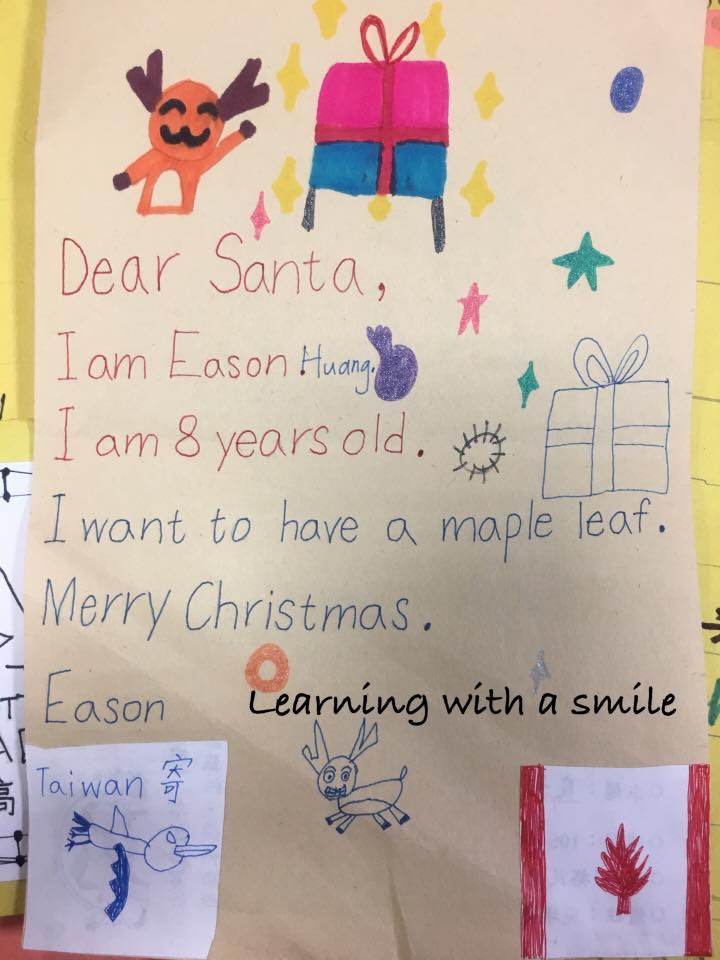 Dear Santa,
I am Eason.Huang.
I am 8 years old.
I want to have a maple leaf.
Merry Christmas.
Eason
Learning with a smile
Taiwan 寄
高